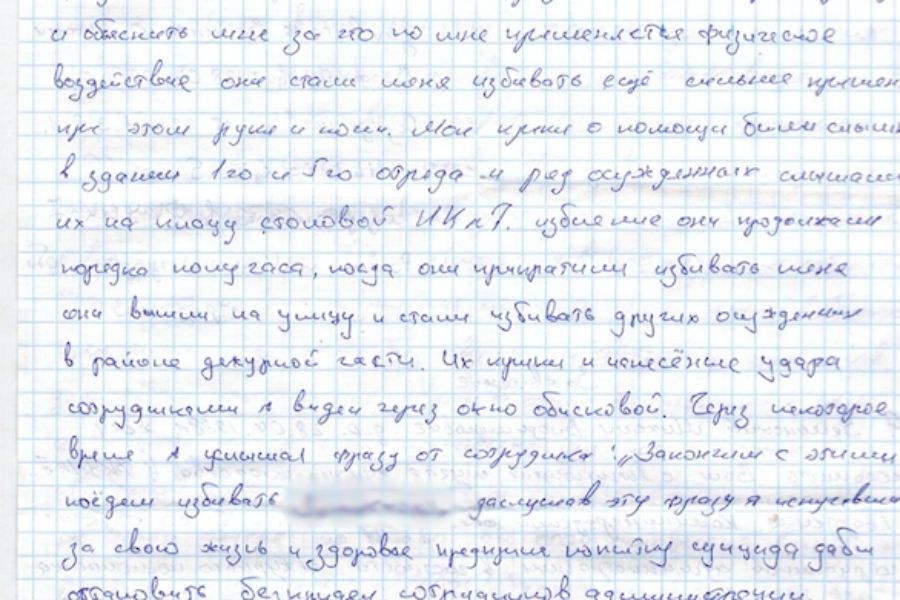 и обяснить мне за что ко мне применяется физическое
воздействие они стали меня избивать ещё сильнее примен
при этом руки и ноги. Мои крики о помощи были слыш
в здании 1го и 5го отряда и ряд осужденных слышали
их на плацу столовой ИК №7. избиение они продолжали
порядка получаса, когда они прикратили избивать меня
они вышли на улицу и стали избивать других осужденных
в районе дежурной части. Их крики и нанесёные удара
сотрудниками я видел через окно обисковой. Через некоторое
время я услышал фразу от сотрудника: „Закончим с этими
поедем избивать заслушав эту фразу я испугавшись
за свою жизнь и здоровье предпринял попытку суицида дабы
остановить сотрудников администрации.